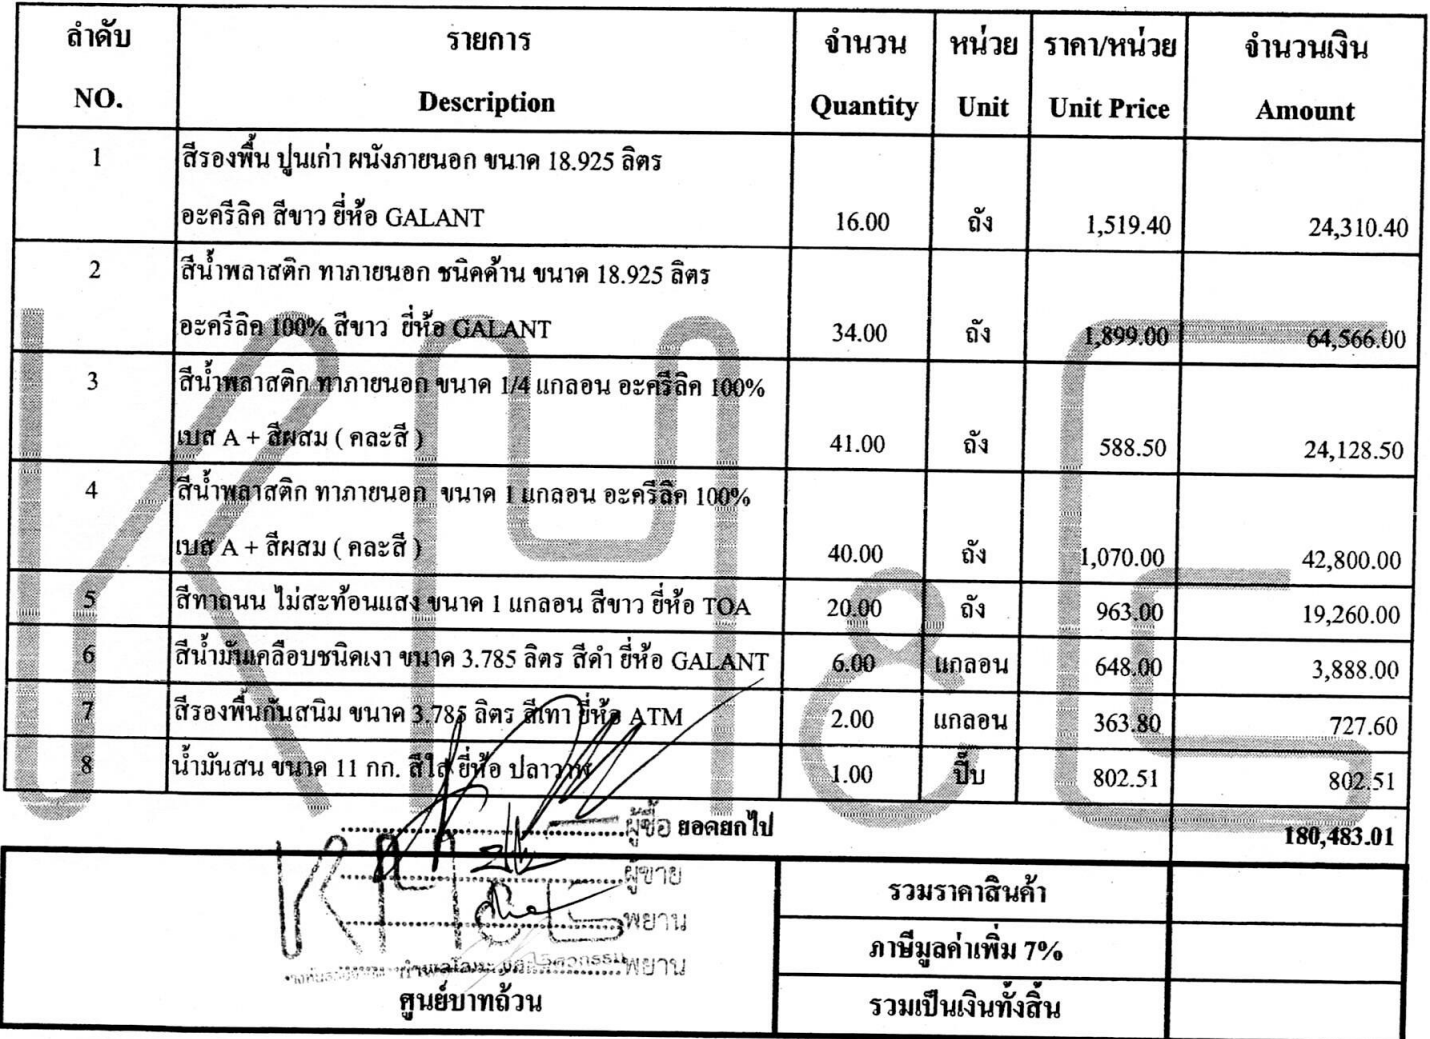 ลำดับ รายการ จำนวน หน่วย ราคา/หน่วย จำนวนเงิน
NO. Description Quantity Unit Unit Price Amount
1 สีรองพื้น ปูนเก่า ผนังภายนอก ขนาด 18.925 ลิตร
อะครีลิค สีขาว ยี่ห้อ GALANT 16.00 ถัง 1,519.40 24,310.40
2 สีน้ำพลาสติก ทาภายนอก ชนิดด้าน ขนาด 18.925 ลิตร
อะครีลิค 100% สีขาว ยี่ห้อ GALANT 34.00 ถัง 1,899.00 64,566.00
3 สีน้ำพลาสติก ทาภายนอก ขนาด 1/4 แกลอน อะครีลิค 100%
เบส A + สีผสม ( คละสี ) 41.00 ถัง 588.50 24,128.50
4 สีน้ำพลาสติก ทาภายนอก ขนาด 1 แกลอน อะครีลิค 100%
เบส A + สีผสม ( คละสี ) 40.00 ถัง 1,070.00 42,800.00
5 สีทาถนน ไม่สะท้อนแสง ขนาด 1 แกลอน สีขาว ยี่ห้อ TOA 20.00 ถัง 963.00 19,260.00
6 สีน้ำมันเคลือบชนิดเงา ขนาด 3.785 ลิตร สีดำ ยี่ห้อ GALANT 6.00 แกลอน 648.00 3,888.00
7 สีรองพื้นกันสนิม ขนาด 3.785 ลิตร สีเทา ยี่ห้อ ATM 2.00 แกลอน 363.80 727.60
8 น้ำมันสน ขนาด 11 กก. สีใส ยี่ห้อ ปลาวาฬ 1.00 ปี๊บ 802.51 802.51
ผู้ซื้อ ยอดยกไป 180,483.01
ผู้ขาย
รวมราคาสินค้า
พยาน
ภาษีมูลค่าเพิ่ม 7%
พยาน
ศูนย์บาทถ้วน รวมเป็นเงินทั้งสิ้น